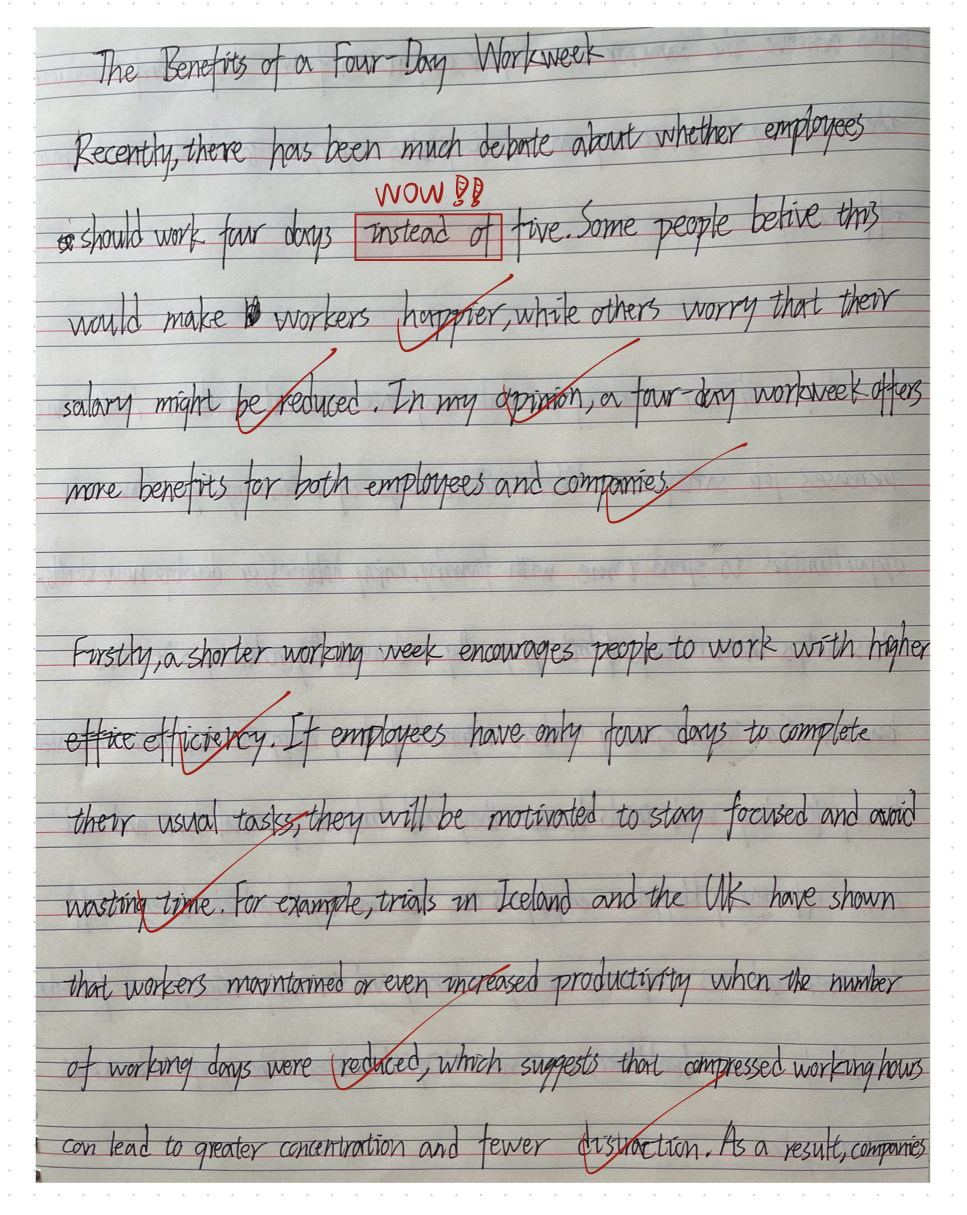 The Benefits of a Four-Day Workweek
Recently, there has been much debate about whether employees
WOW!!
should work four days instead of five. Some people belive this
would make workers happier, while others worry that their
salary might be reduced. In my opinion, a four-day workweek offers
more benefits for both employees and companies.
Firstly, a shorter working week encourages people to work with higher
effice efficiency. If employees have only four days to complete
their usual tasks, they will be motivated to stay focused and avoid
wasting time. For example, trials in Iceland and the UK have shown
that workers maintained or even increased productivity when the number
of working days were reduced, which suggests that compressed working hours
can lead to greater concentration and fewer distraction. As a result, companies